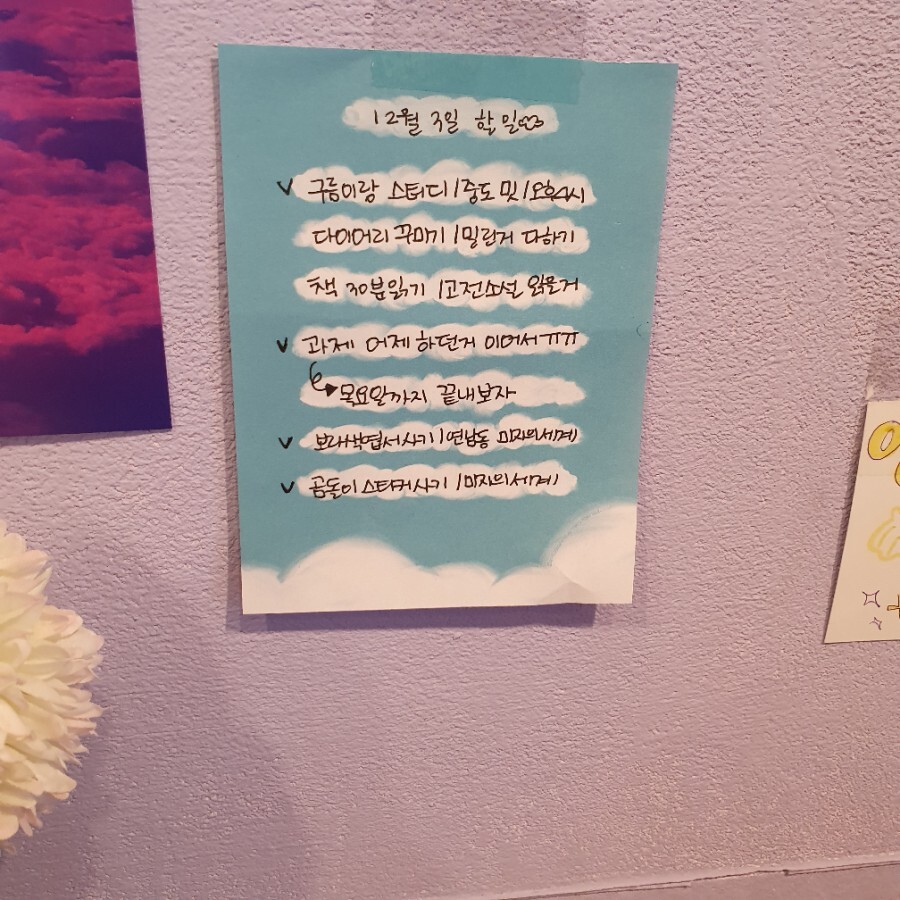 12월 3일 할 일
v 구름이랑 스터디 / 중도 밑 / 오후4시
다이어리 꾸미기 / 밀린거 다하기
책 30분읽기 / 고전소설
v 과제 어제 하던거 이어서 ㅠㅠ
목요일까지 끝내보자
v 보래색엽서사기 / 연남동 미지의세계
v 곰돌이 스티커사기 / 미지의세계